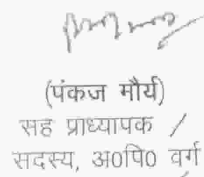 (पंकज मौर्य)
सह प्राध्यापक /
सदस्य, अ0पि0 वर्ग